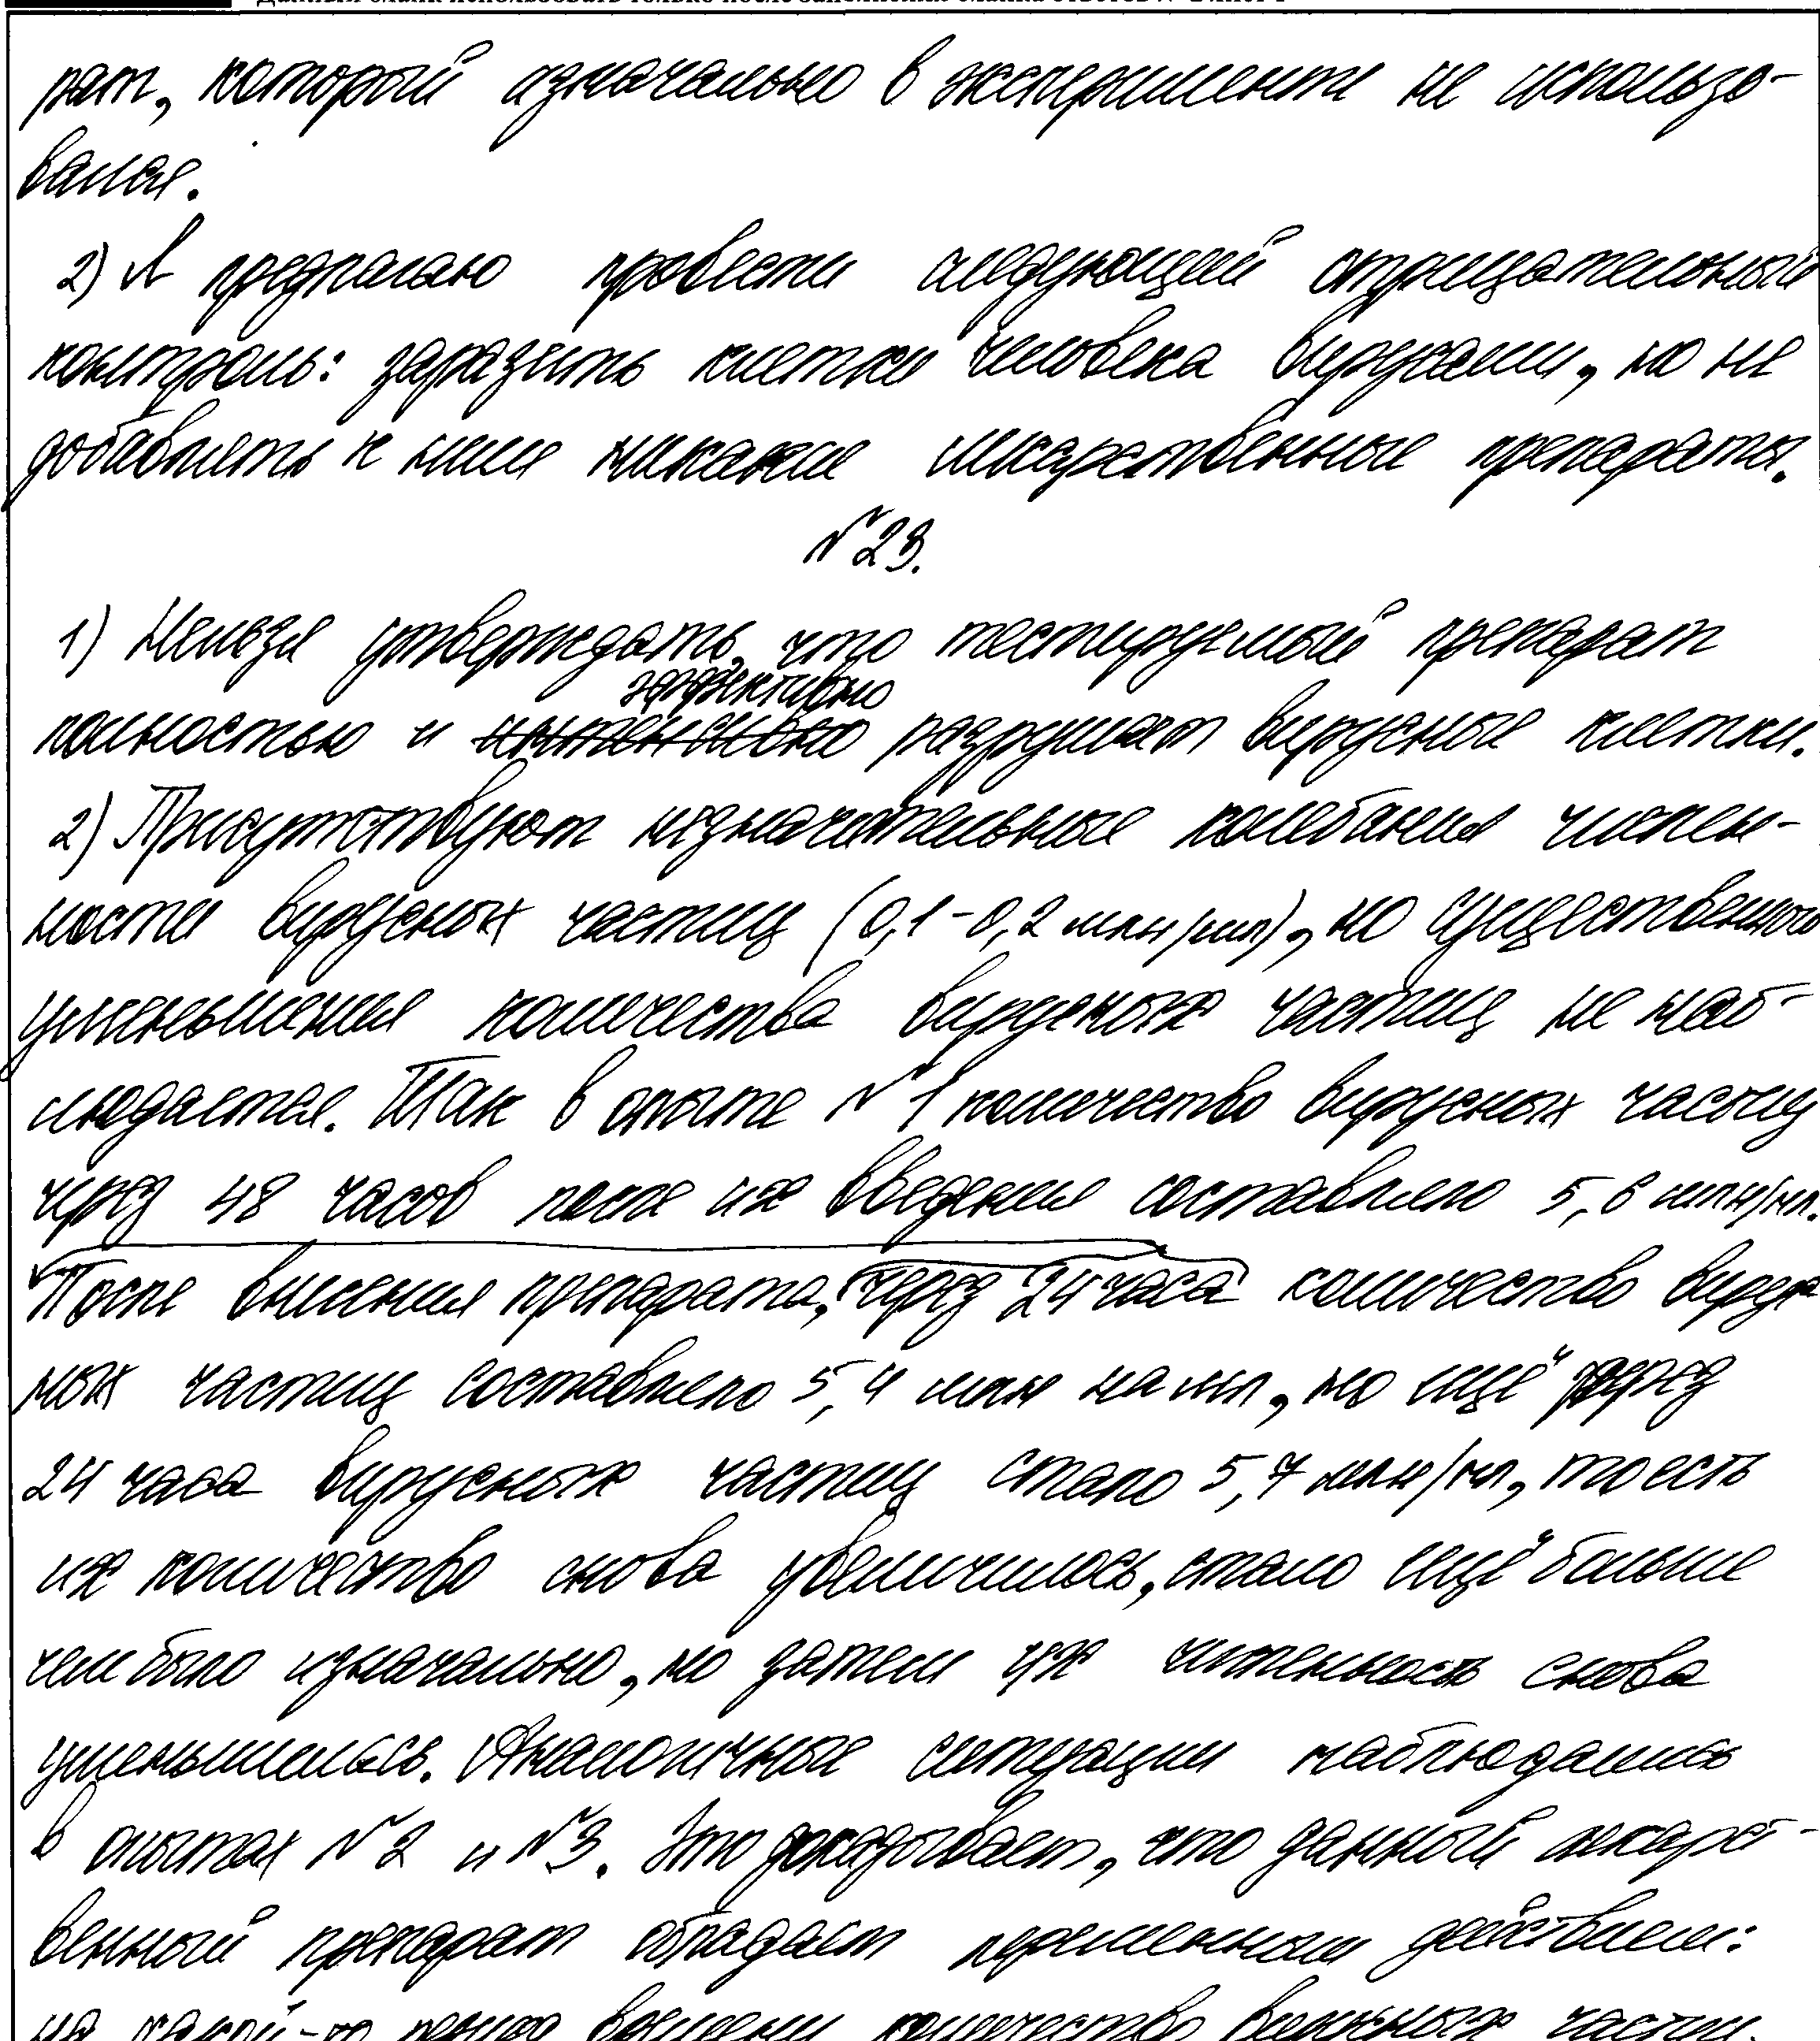 рат, который изначально в эксперименте не использо-
вался.
2) Я предлагаю провести следующий отрицательный
контроль: заразить клетки человека вирусами, но не
добавлять к ним никакие лекарственные препараты.
№23.
1) Нельзя утверждать, что тестируемый препарат
эффективно
полностью и разрушает вирусные клетки.
2) Присутствуют незначительные колебания числен-
ности вирусных частиц (0,1-0,2 млн/мл), но существенного
уменьшения количества вирусных частиц не наб-
людается. Так в опыте №1 количество вирусных частиц
через 48 часов после их введения составляло 5,6 млн/мл.
После внесения препарата, через 24 часа количество вирус
ных частиц составляло 5,4 млн на мл, но ещё через
24 часа вирусных частиц стало 5,7 млн/мл, то есть
их количество снова увеличилось, стало ещё больше
чем было изначально, но затем их численность снова
уменьшилась. Аналогичные ситуации наблюдались
в опытах №2 и №3. Это доказывает, что данный лекарст-
венный препарат обладает временным действием:
на какой-то время количество вирусных частиц